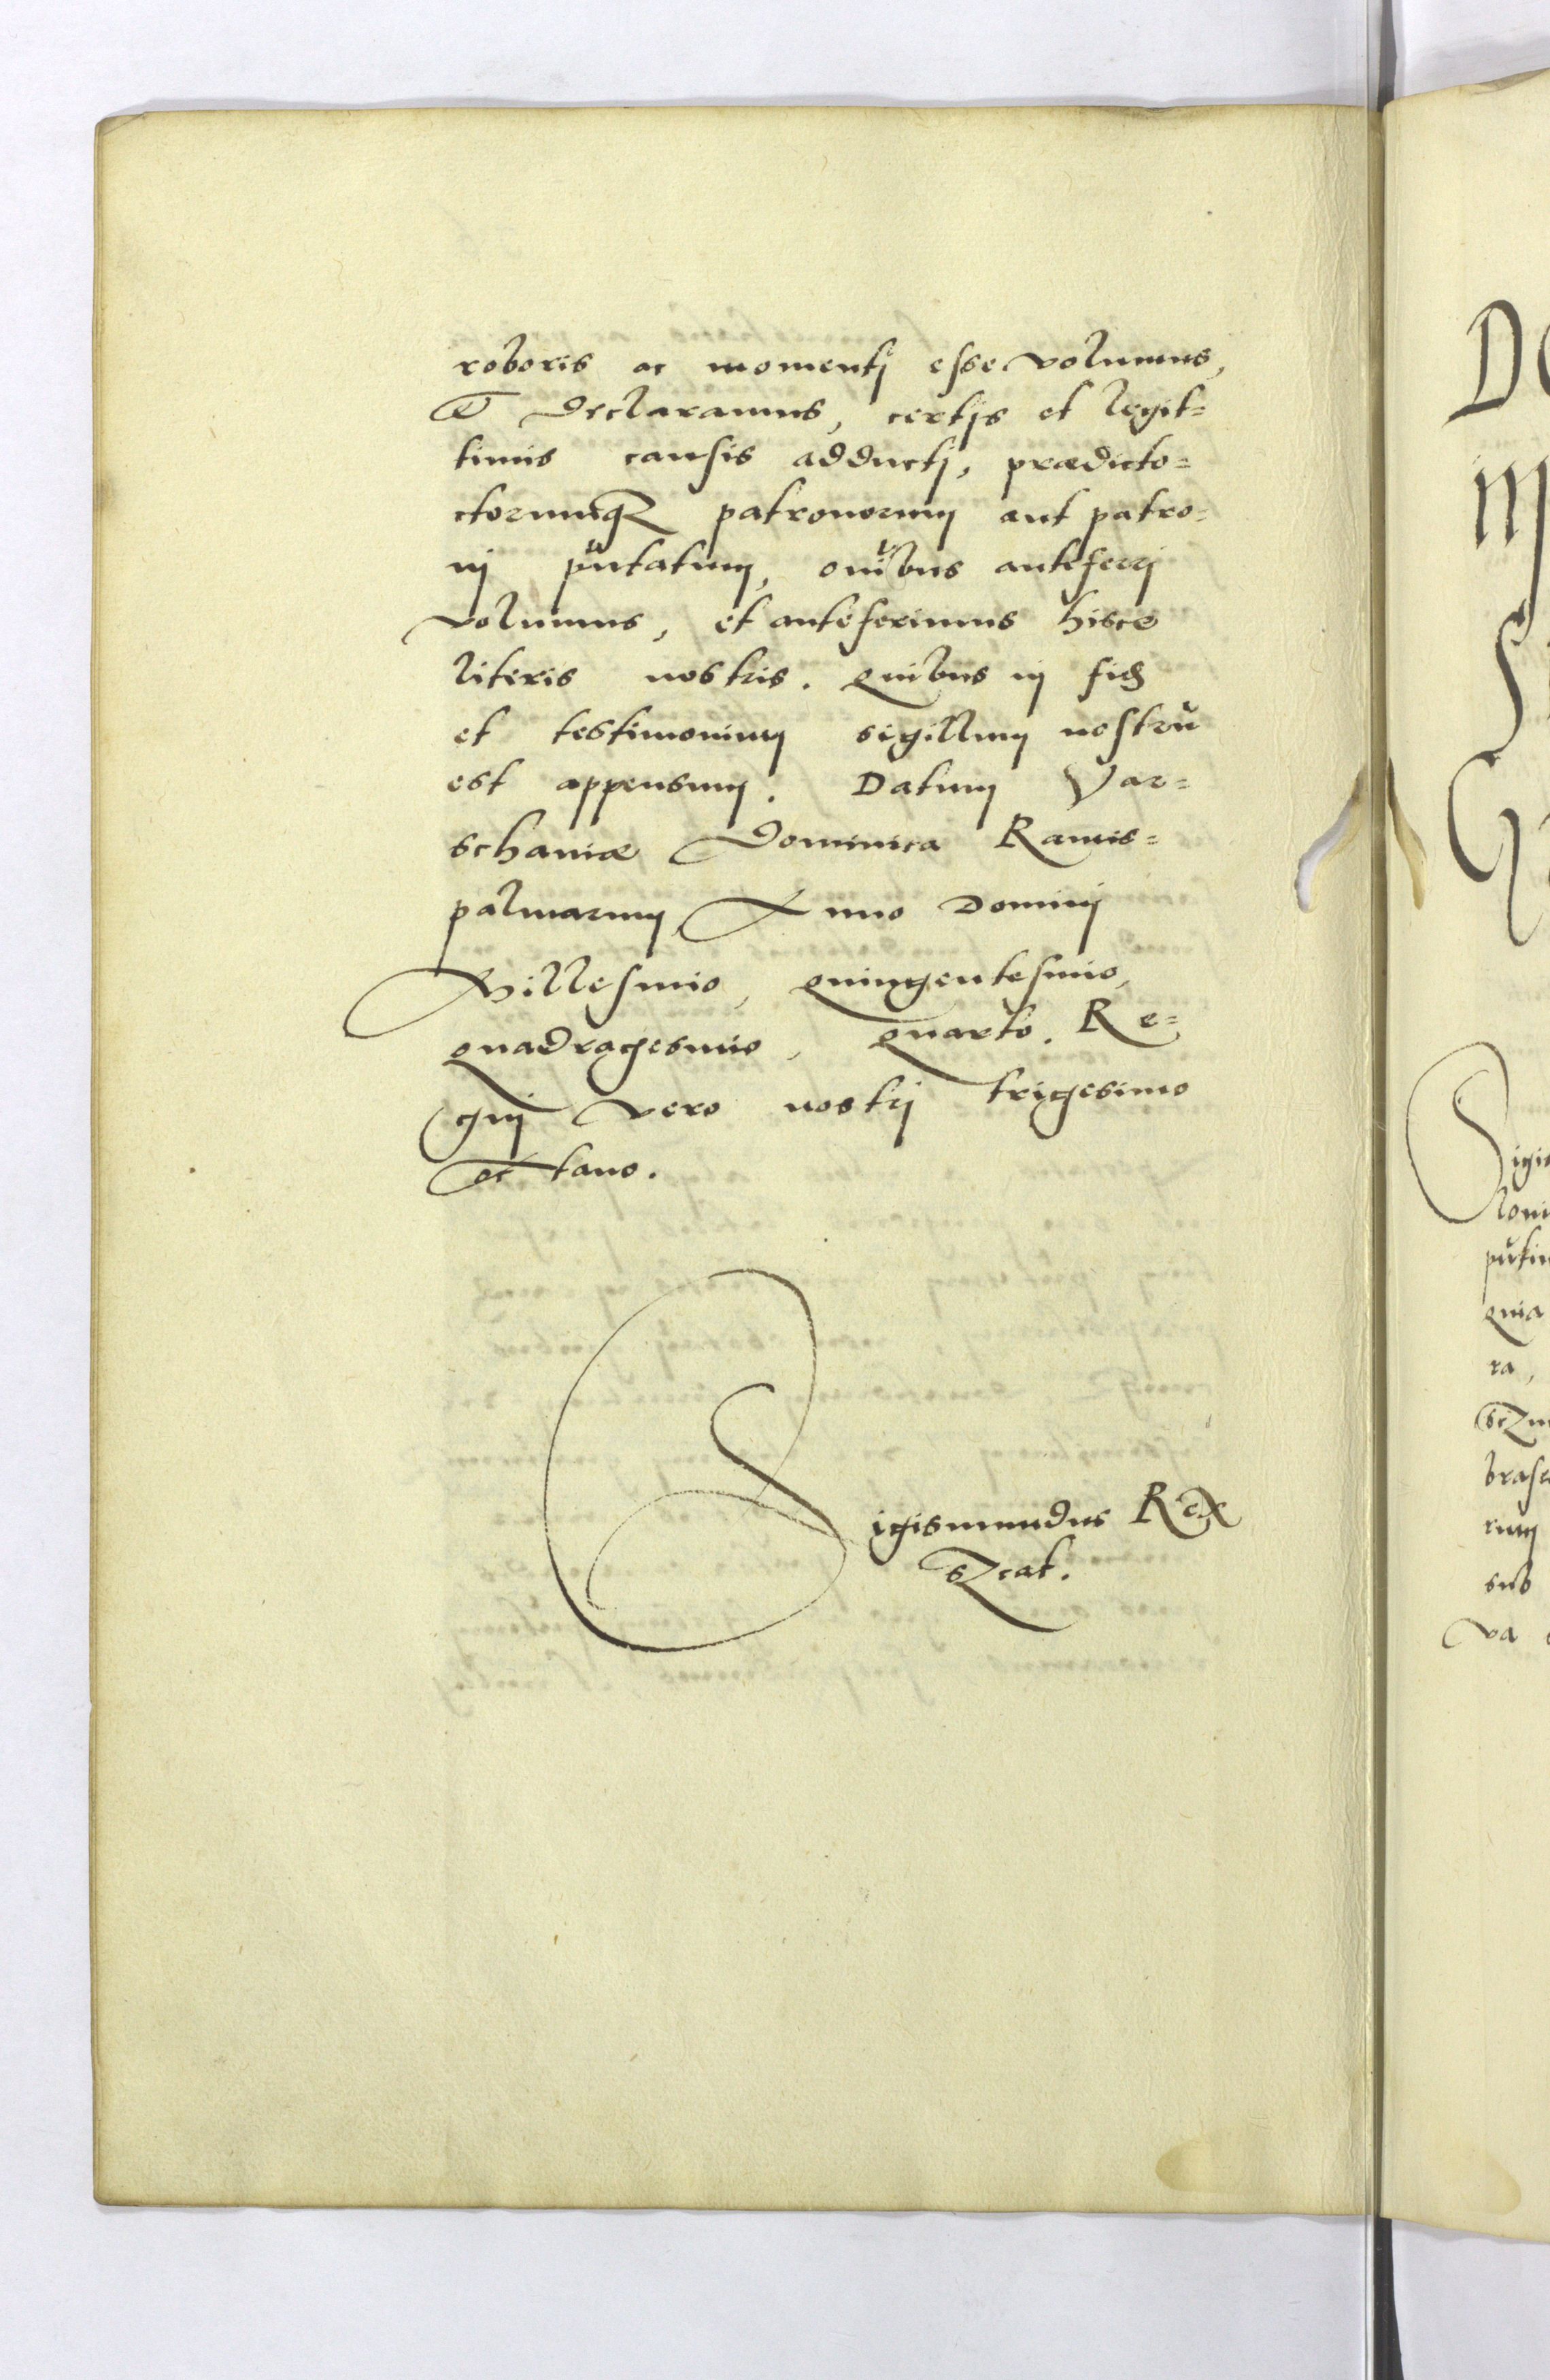 roboris ac momentj esse volumus,
et declaramus, certjs et legit=
timis causis adductj, prædicto=
ctorumq3 patronorum aut patro=
nj pñtatum, oñibus anteferrj
volumus, et anteferimus hisce
literis nostris. quibus in fid̄
et testimonium sigillum nostrū
est appensum. Datum Var=
schaviæ Dominica Ramis=
palmarum, Anno Dominj
Millesimo, quingentesimo,
quadragesimo, quarto. Re=
gnj vero nostrj trigesimo
octavo.
Sigismundus Rex
DO
M
ra,
rum
sub
va